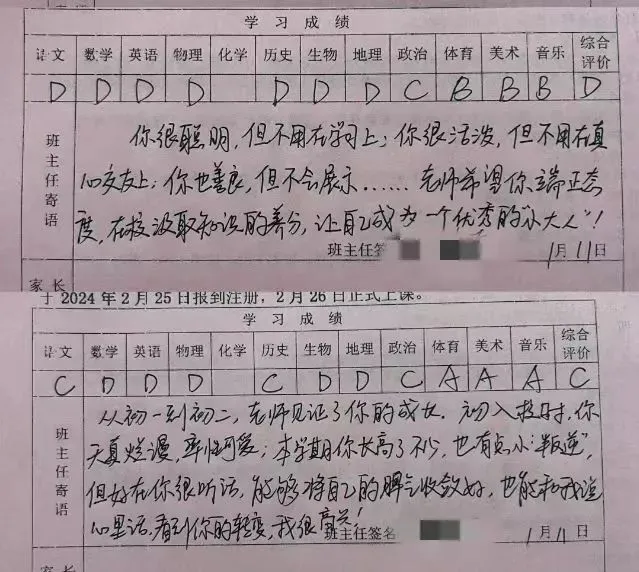 学习成绩
语文 数学 英语 物理 化学 历史 生物 地理 政治 体育 美术 音乐 综合评价
D D D D D D D C B B B D
班主任寄语
你很聪明，但不用在学习上；你很活泼，但不用在真
心交友上；你也善良，但不会展示……老师希望你端正态
度，在校汲取知识的养分，让自己成为一个优秀的“小大人”！
班主任签
1月11日
家长
于2024年2月25日报到注册，2月26日正式上课。
学习成绩
语文 数学 英语 物理 化学 历史 生物 地理 政治 体育 美术 音乐 综合评价
C D D D C D D C A A A C
班主任寄语
从初一到初二，老师见证了你的成长。初入校时，你
天真烂漫，率性可爱；本学期你长高了不少，也有点小“叛逆”，
但好在你很听话，能够将自己的脾气收敛好，也能和我说
心里话，看到你的转变，我很高兴！
班主任签名
1月11日